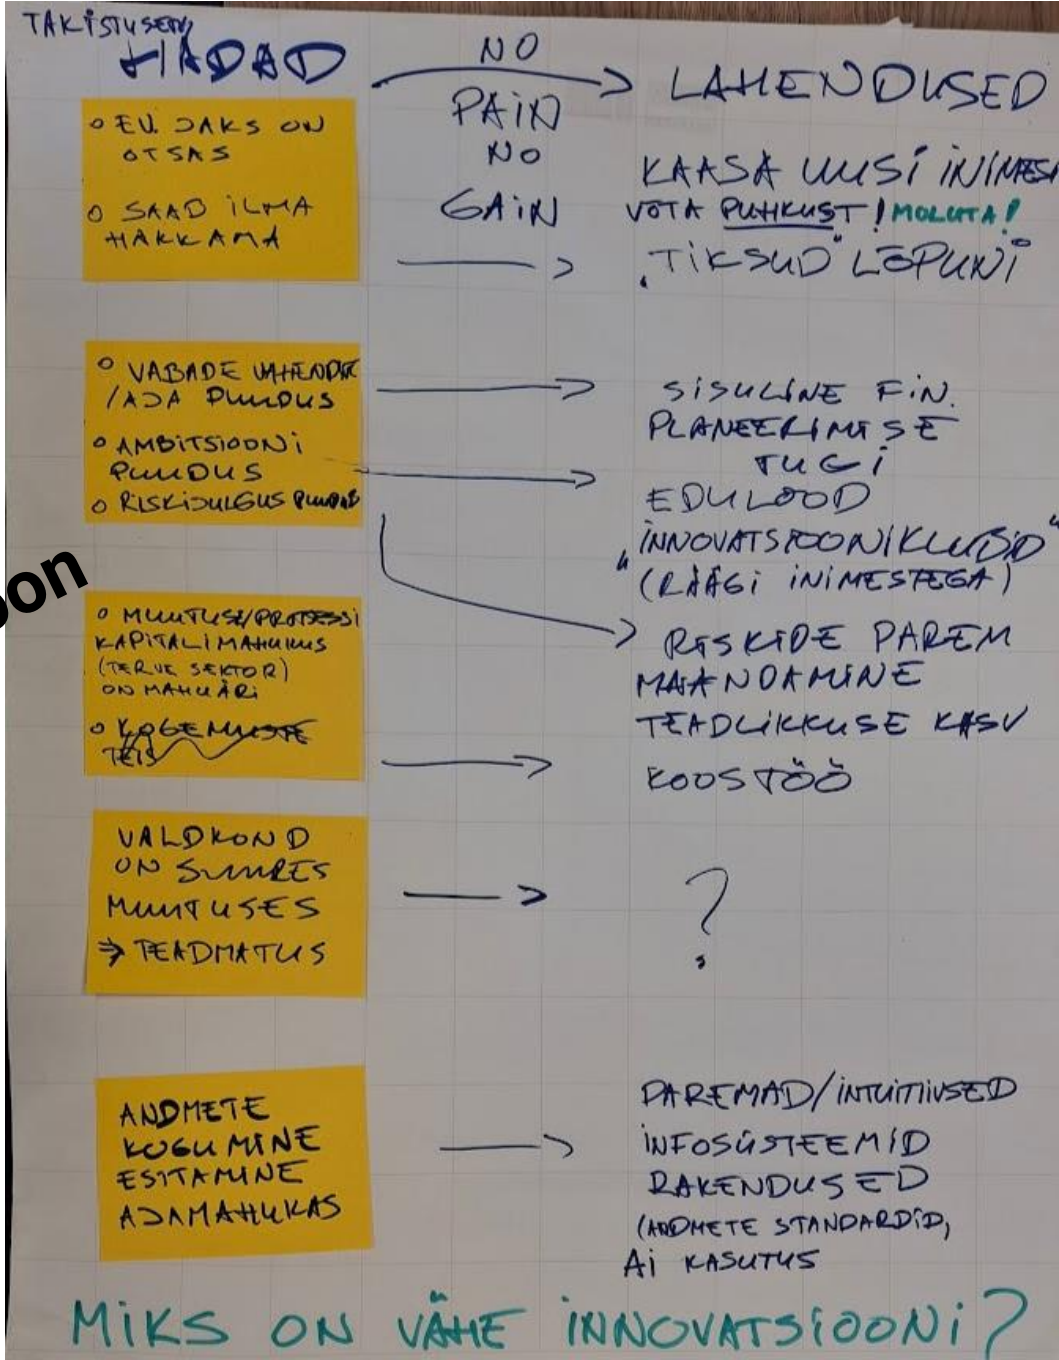 TAKISTUSED/
HÄDAD
NO
PAIN
NO
GAIN
LAHENDUSED
o EV. JAKS ON
OTSAS
o SAAB ILMA
HAKKAMA
KAASA UUSI INIMESI
VÕTA PUHKUST! MOLUTA!
"TIKSUD" LÕPUNI
o VABADE VAHENDITE
/AJA PUUDUS
o AMBITSIOONI
PUUDUS
o RISKIJULGUS PUUDUB
SISULINE FIN.
PLANEERIMISE
TUGI
EDULOOD
"INNOVATSIOONIKLUBID"
(RÄÄGI INIMESTEGA)
oon
o MUUTUSE/PROTSESSI
KAPITALIMAHUKUS
(TERVE SEKTOR)
ON MAHUÄRI
o KOGEMUSTE
RISKIDE PAREM
MAANDAMINE
TEADLIKKUSE KASV
KOOSTÖÖ
VALDKOND
ON SUURES
MUUTUSES
⇒ TEADMATUS
?
ANDMETE
KOGUMINE
ESITAMINE
AJAMAHUKAS
PAREMAD/INTUITIIVSED
INFOSÜSTEEMID
RAKENDUSED
(ANDMETE STANDARDID,
AI KASUTUS
MIKS ON VÄHE INNOVATSIOONI?